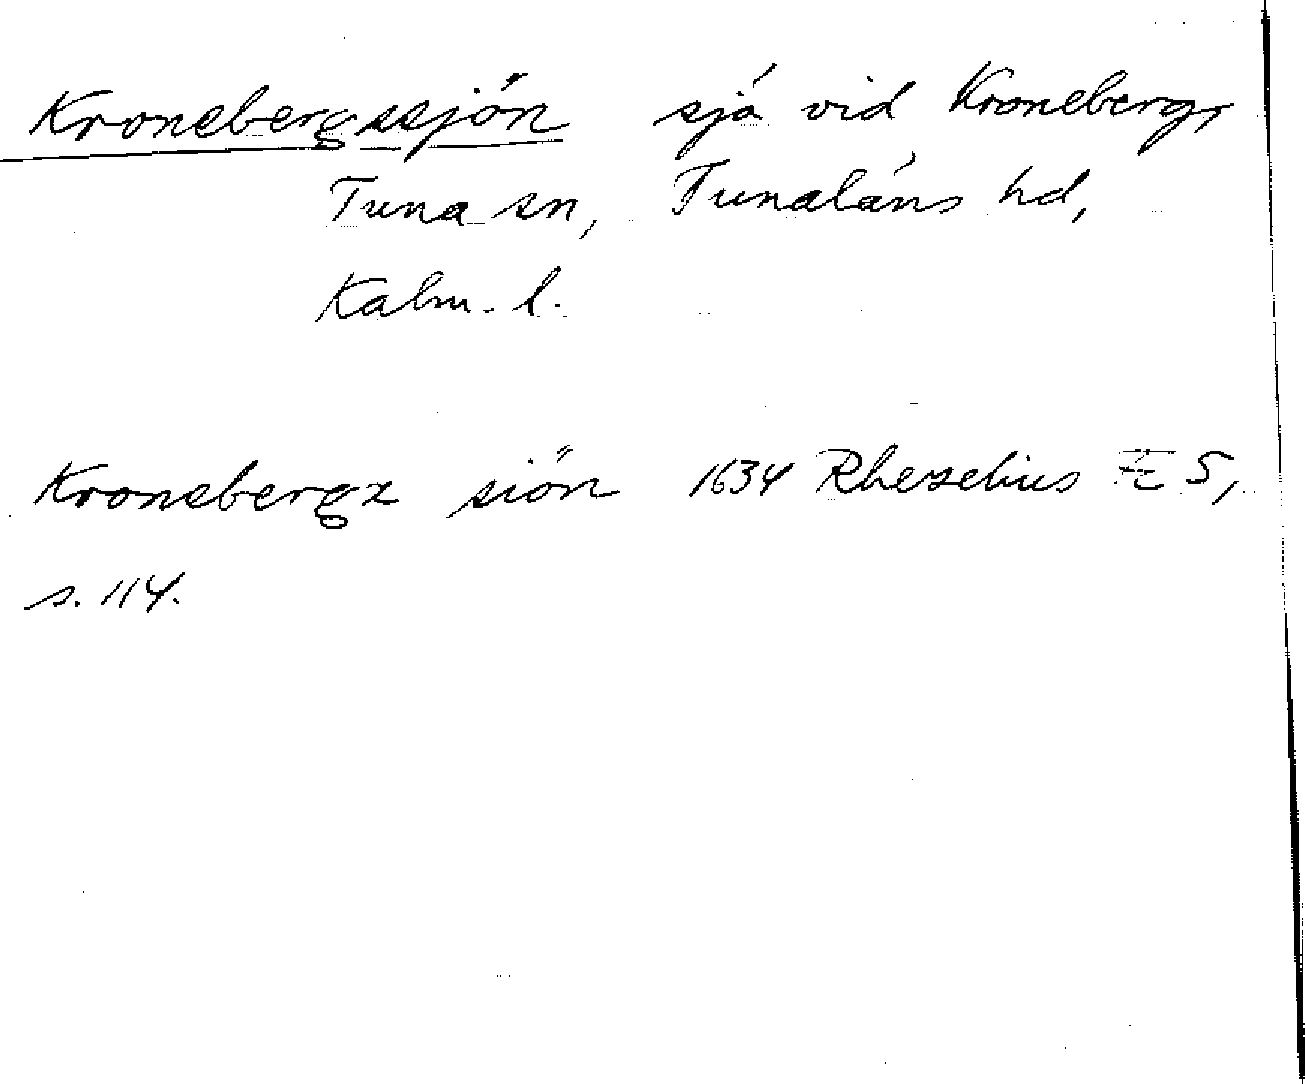 Kronebergssjön sjö vid Kroneberg,
Tuna sn, Tunaläns hd,
Kalm. l.
Kronebergz siön 1634 Rhezelius Æ S,
s. 114.